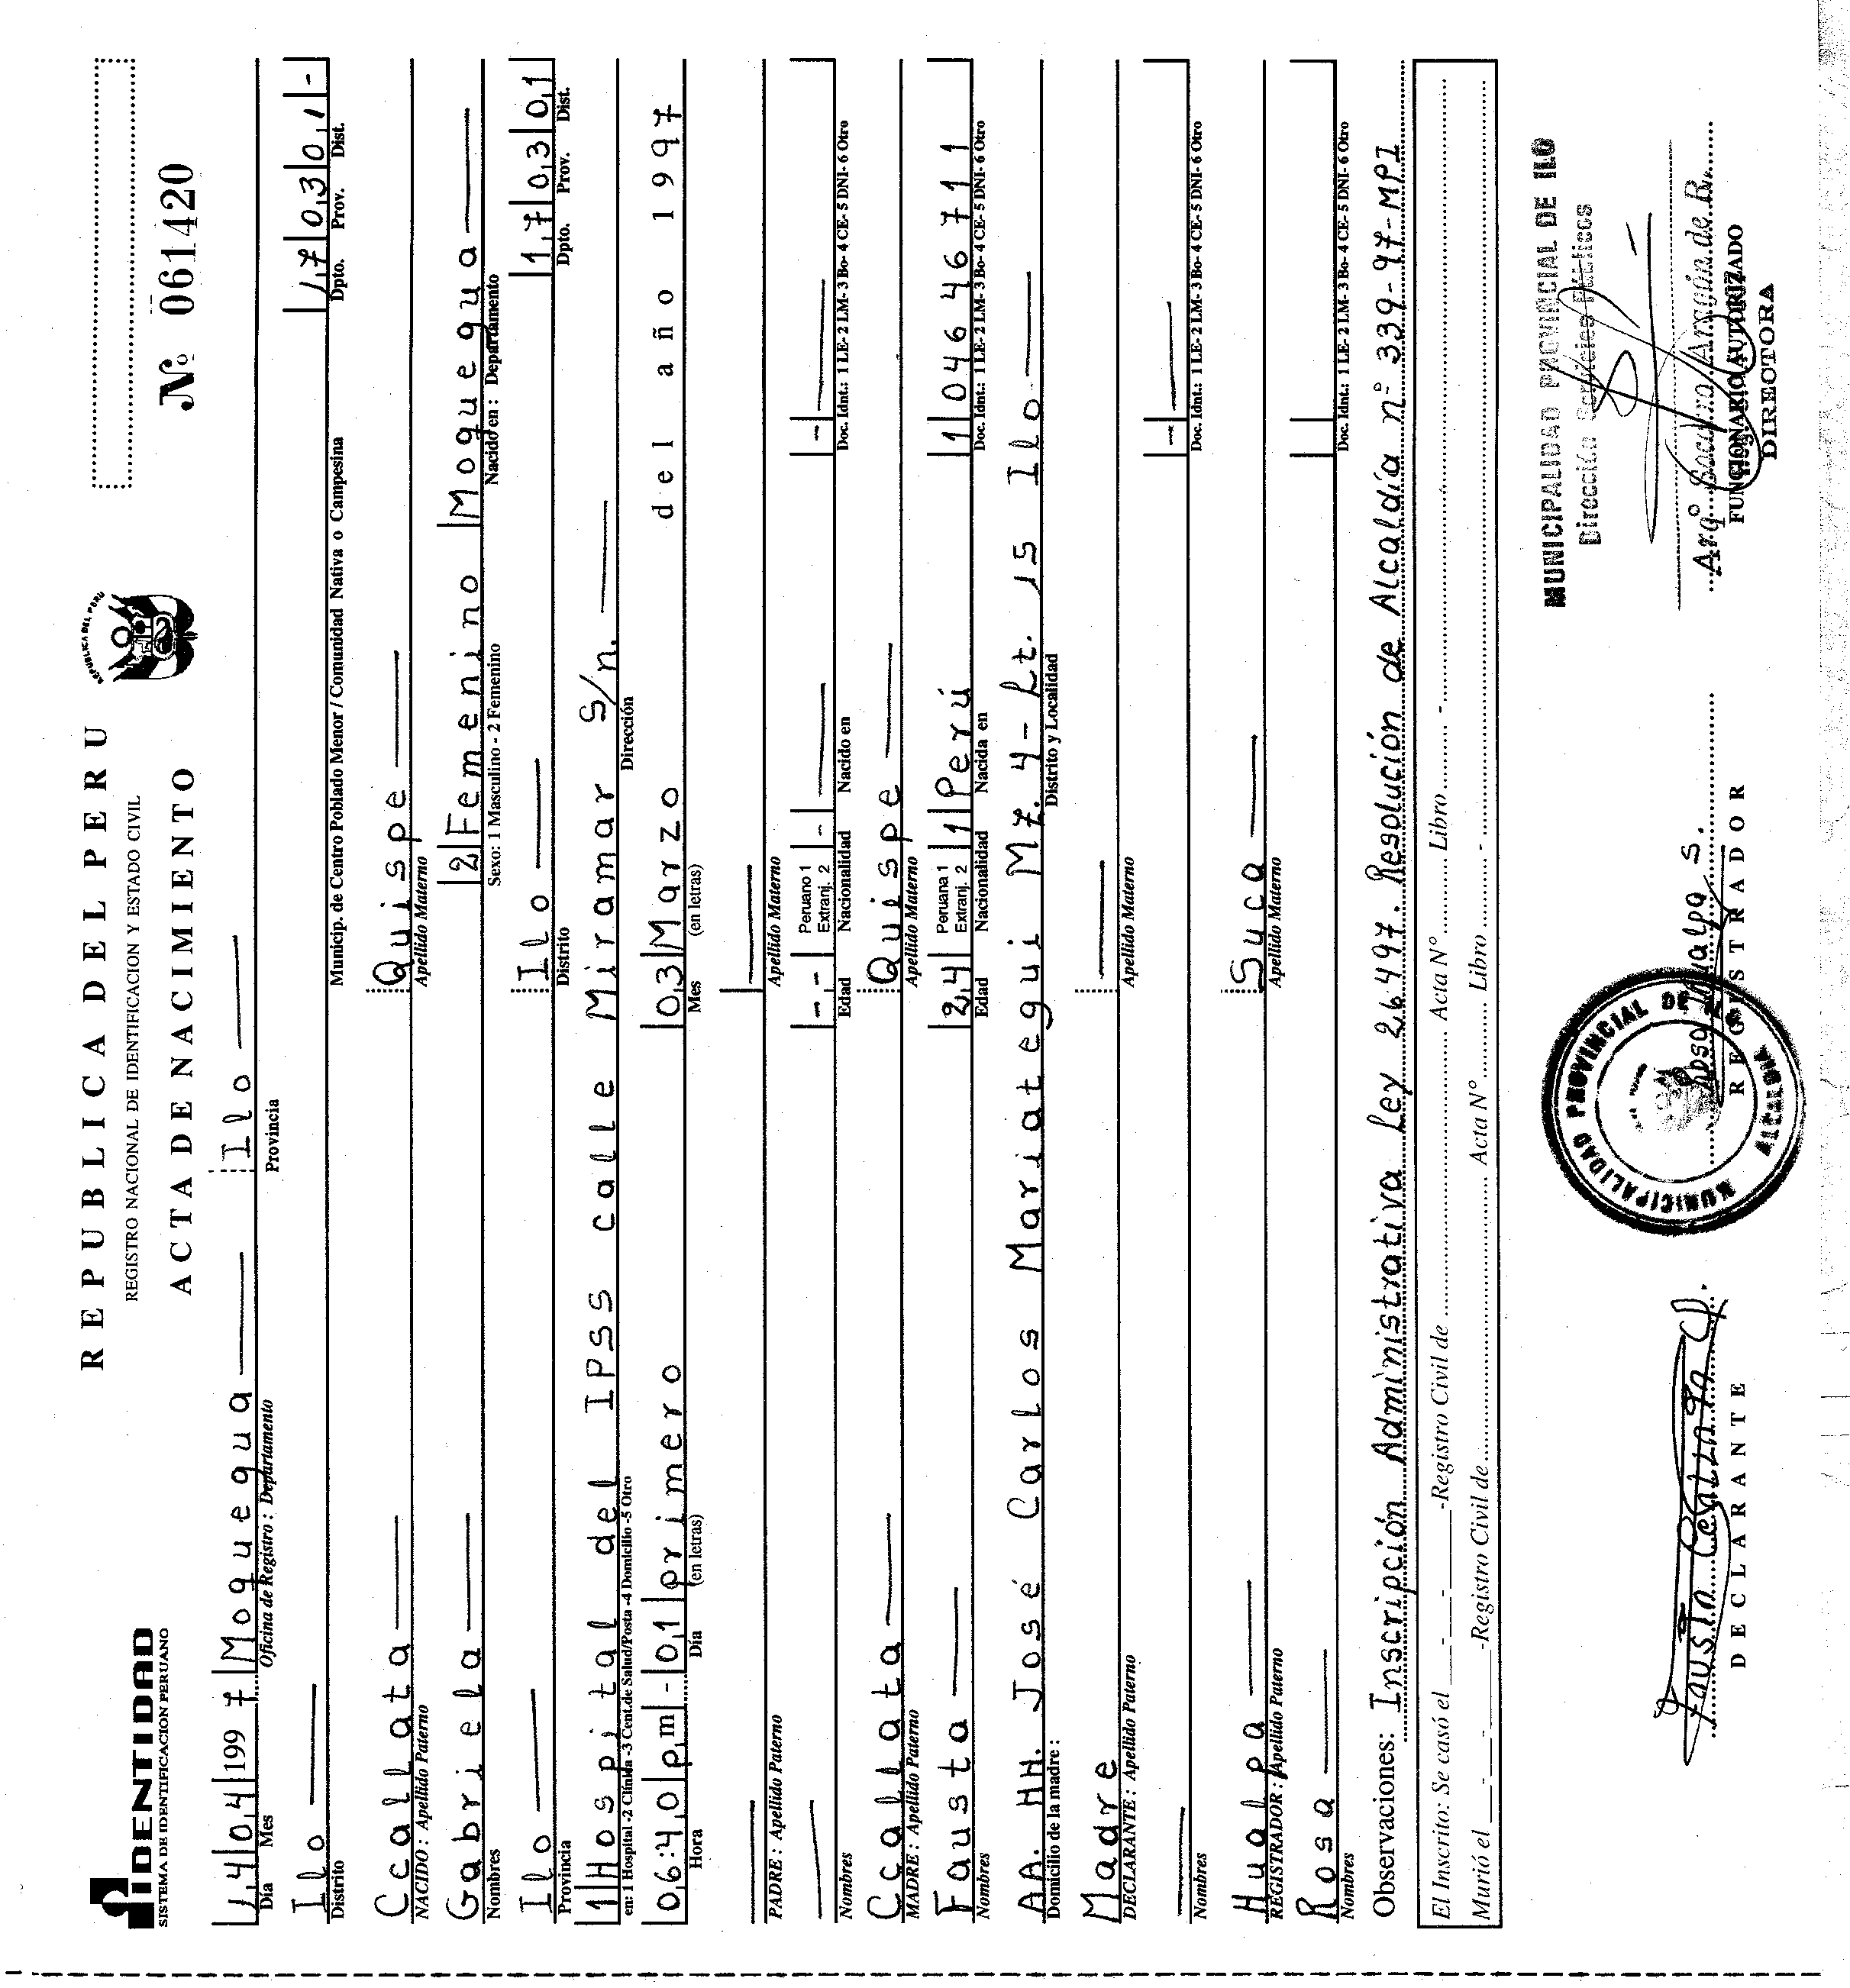 REPUBLICA DEL PERU
REGISTRO NACIONAL DE IDENTIFICACION Y ESTADO CIVIL
ACTA DE NACIMIENTO
REPUBLICA DEL PERU
IDENTIDAD
SISTEMA DE IDENTIFICACION PERUANO
Nº 061420
1,4 0,4 199 7 Moquegua Ilo
Día Mes Oficina de Registro : Departamento Provincia
Ilo 1,7 0,3 0,1 -
Distrito Municip. de Centro Poblado Menor / Comunidad Nativa o Campesina Dpto. Prov. Dist.
Ccallata Quispe
NACIDO : Apellido Paterno Apellido Materno
Gabriela 2 Femenino Moquegua
Nombres Sexo: 1 Masculino - 2 Femenino Nacido en : Departamento
Ilo Ilo 1,7 0,3 0,1
Provincia Distrito Dpto. Prov. Dist.
1 Hospital del IPSS calle Miramar S/n.
en: 1 Hospital -2 Clínica -3 Cent.de Salud/Posta -4 Domicilio -5 Otro Dirección
06:40 pm - 01 primero 03 Marzo del año 1997
Hora Día (en letras) Mes (en letras)
PADRE : Apellido Paterno Apellido Materno
- - Peruano 1 Extranj. 2 - -
Nombres Edad Nacionalidad Nacido en Doc. Idnt.: 1 LE- 2 LM- 3 Bo- 4 CE- 5 DNI- 6 Otro
Ccallata Quispe
MADRE : Apellido Paterno Apellido Materno
Fausta 2,4 Peruana 1 Extranj. 2 1 Perú 1 04646711
Nombres Edad Nacionalidad Nacida en Doc. Idnt.: 1 LE- 2 LM- 3 Bo- 4 CE- 5 DNI- 6 Otro
AA. HH. José Carlos Mariategui Mz. 4- Lt. 15 Ilo
Domicilio de la madre : Distrito y Localidad
Madre
DECLARANTE : Apellido Paterno Apellido Materno
-
Nombres Doc. Idnt.: 1 LE- 2 LM- 3 Bo- 4 CE- 5 DNI- 6 Otro
Hualpa Suca
REGISTRADOR : Apellido Paterno Apellido Materno
Rosa
Nombres Doc. Idnt.: 1 LE- 2 LM- 3 Bo- 4 CE- 5 DNI- 6 Otro
Observaciones: Inscripción Administrativa Ley 26497. Resolución de Alcaldía nº 339-97-MPI
El Inscrito: Se casó el - - -Registro Civil de Acta Nº Libro -
Murió el - - -Registro Civil de Acta Nº Libro -
MUNICIPALIDAD PROVINCIAL DE ILO
Dirección Servicios Públicos
MUNICIPALIDAD PROVINCIAL DE ILO
ALCALDIA
Rosa Hualpa S.
Arqº Socorro Aragón de R.
DECLARANTE REGISTRADOR FUNCIONARIO AUTORIZADO
DIRECTORA